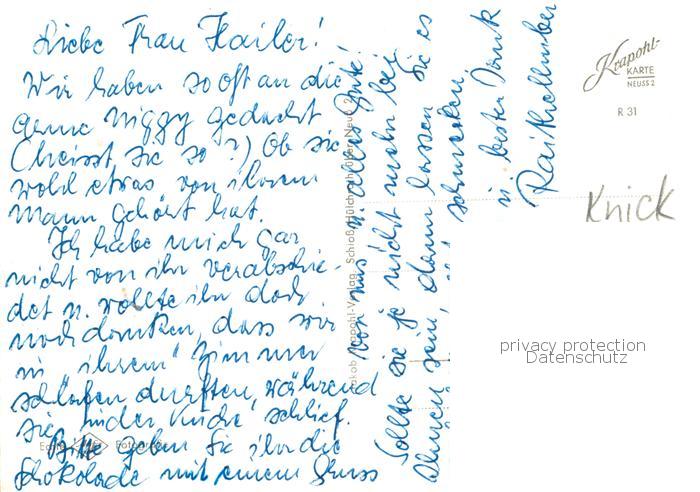 Liebe Frau Hailer!
Wir haben so oft an die
gerne Niggy gedacht
(heisst sie so?) Ob sie
wohl etwas von ihrem
Mann gehört hat.
Ich habe mich gar
nicht von ihr verabschie-
det u. wollte ihr doch
noch danken, dass wir
in "ihrem" Zimmer
schlafen durften, während
sie in der Küche schlief.
Bitte geben Sie ihr die
Schokolade mit einem Gruss
von uns u. alles Gute!
Sollte sie je nicht mehr bei
Ihnen sein, dann lassen Sie es
schmecken.
u. bester Dank
Krapohl-
KARTE
NEUSS 2
R 31
Knick
privacy protection
Datenschutz